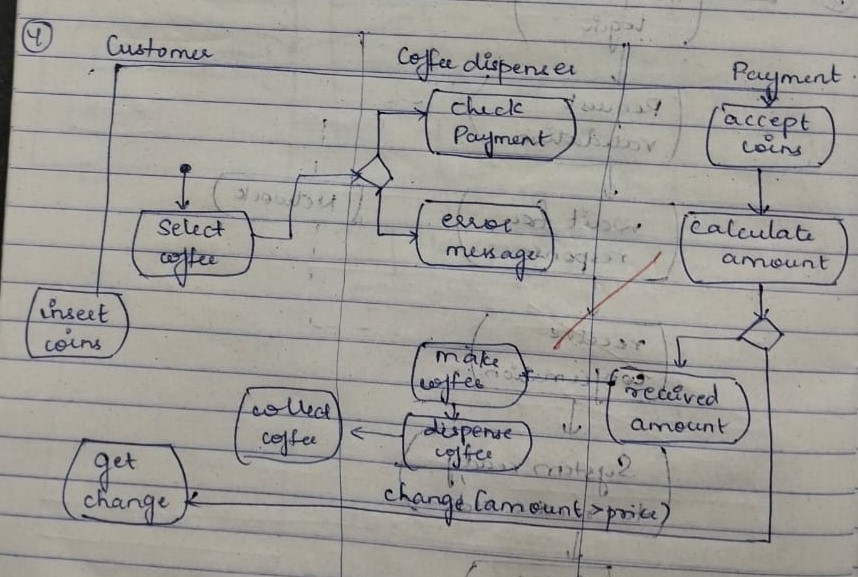 4
Customer
Coffee dispenser
Payment
check
Payment
accept
coins
select
coffee
error
message
calculate
amount
insert
coins
make
coffee
received
amount
collect
coffee
dispense
coffee
get
change
change (amount > price)